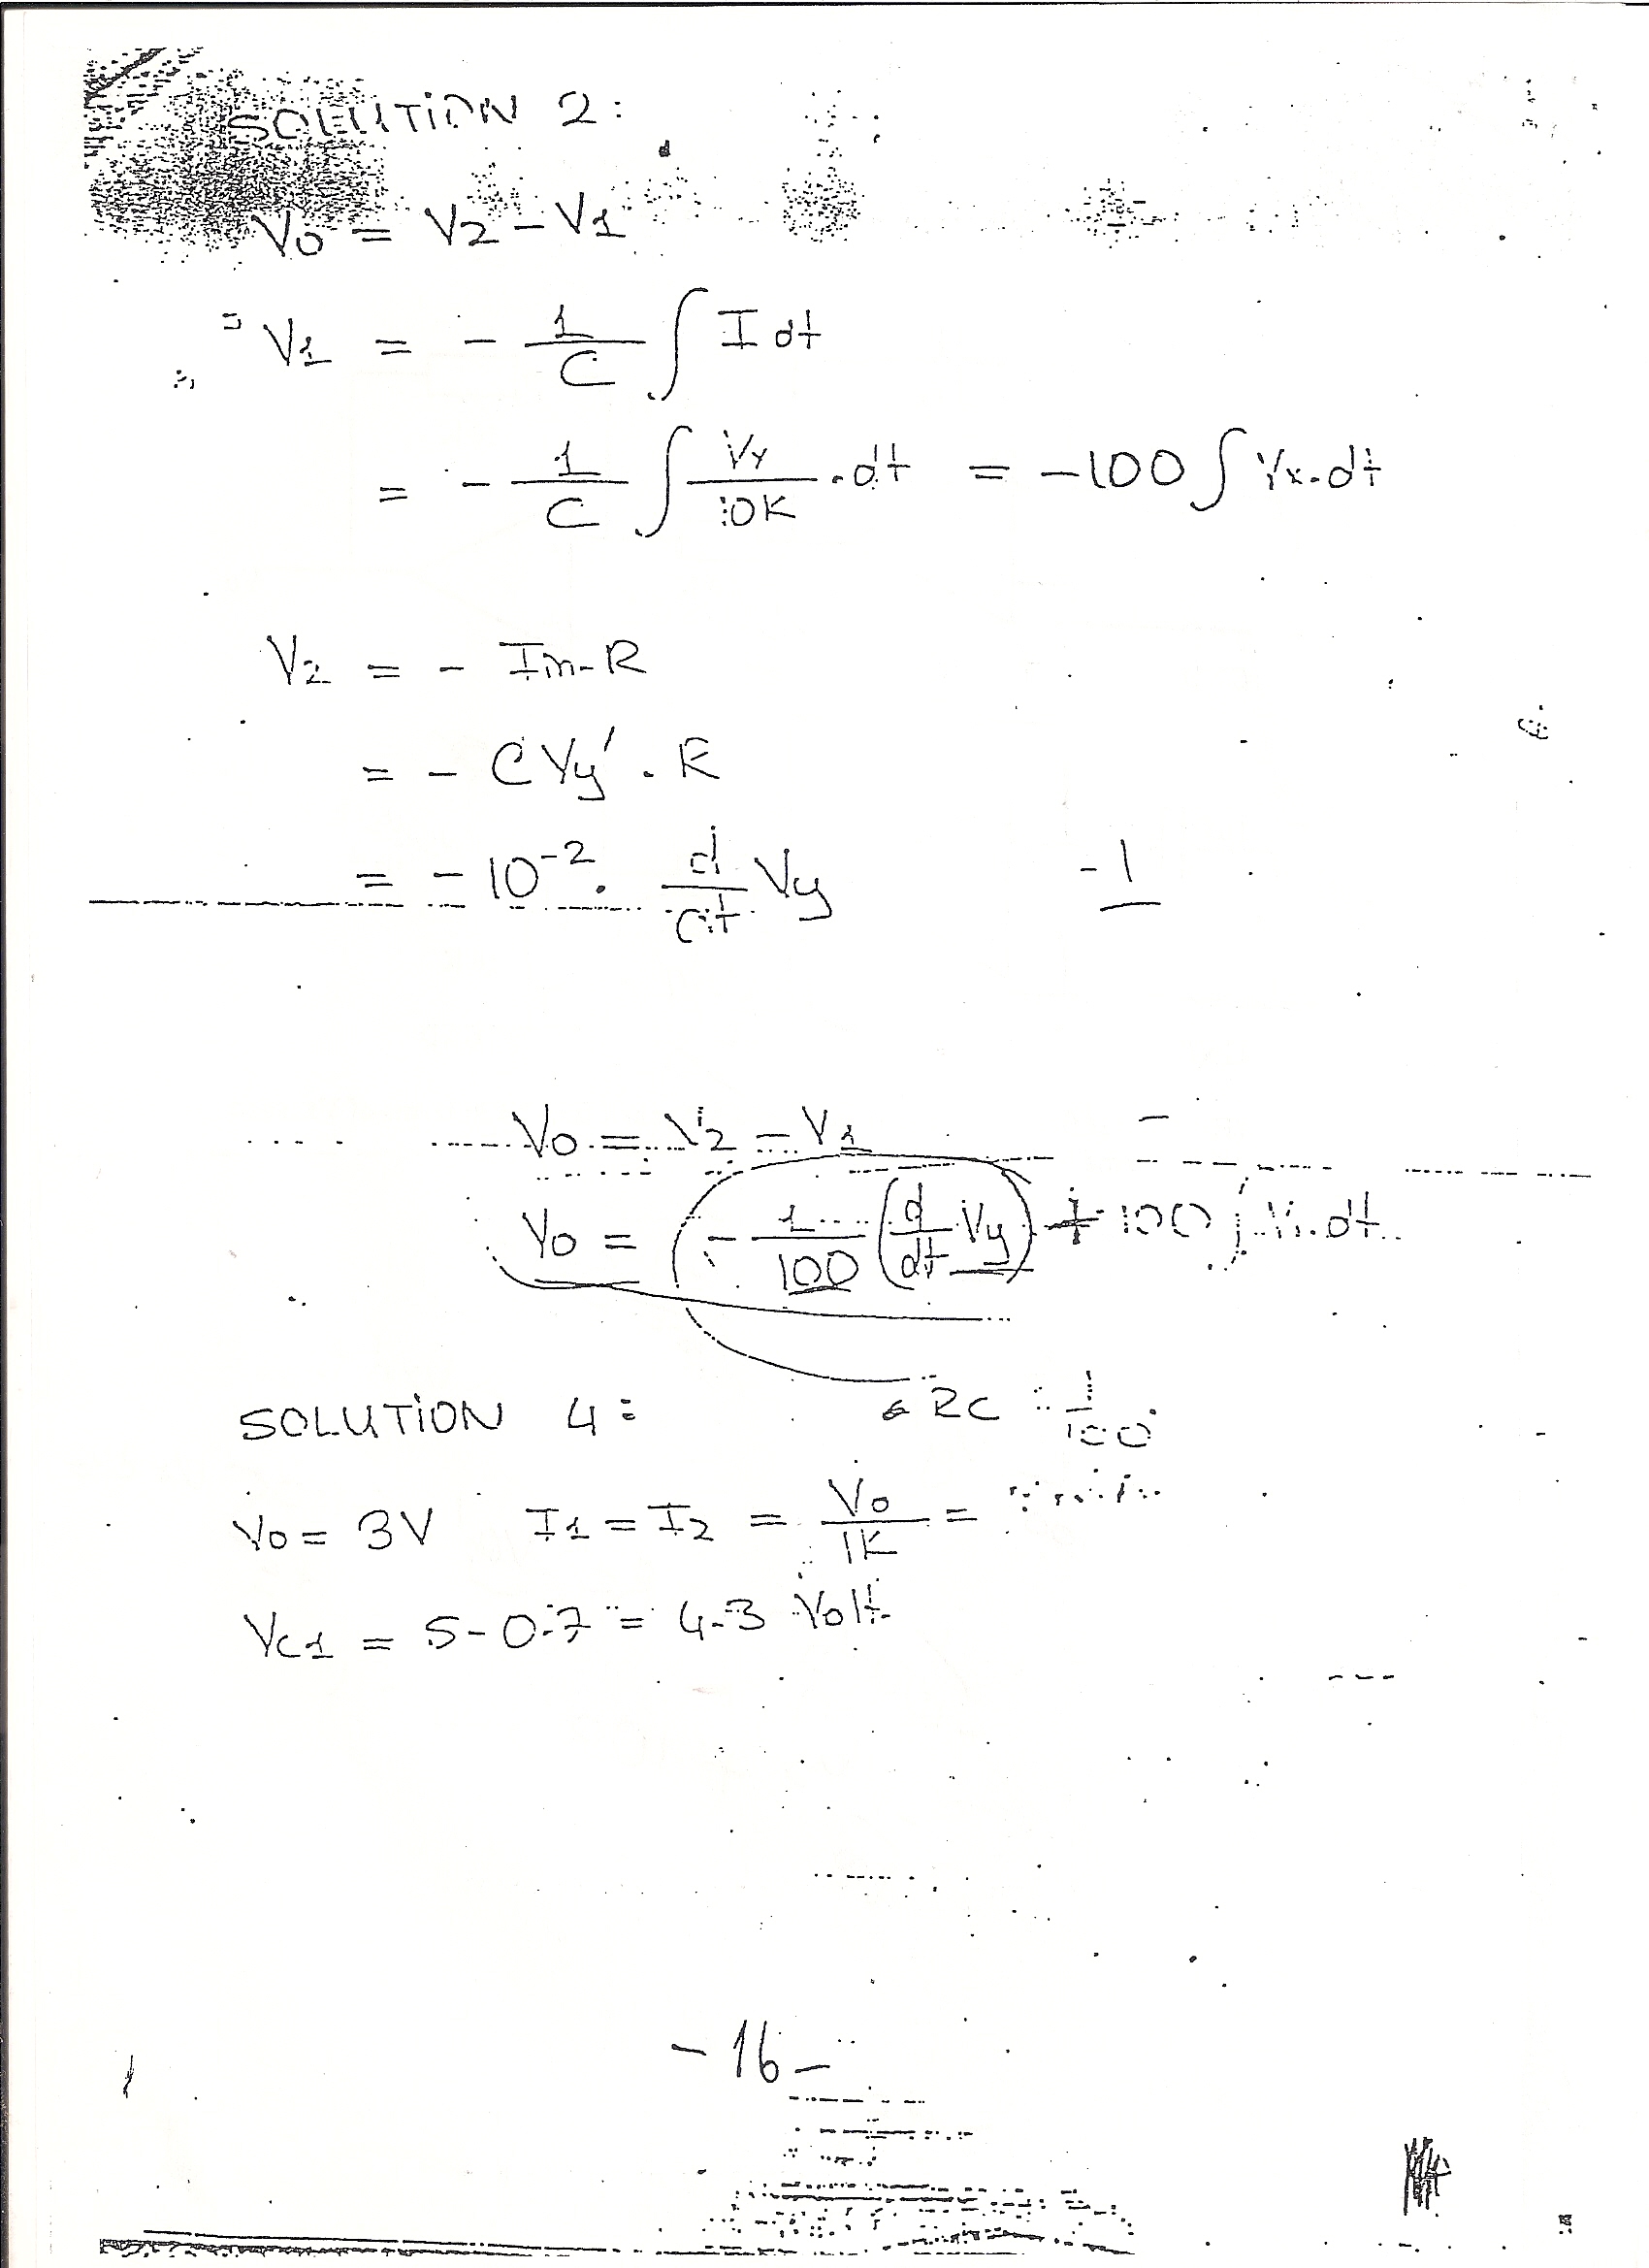 SOLUTION 2:
V0 = V2 - V1
V1 = - 1/C ∫ I dt
= - 1/C ∫ Vy/10K . dt = -100 ∫ Vx . dt
V2 = - Im - R
= - C Vy' . R
= - 10^-2 . d/dt Vy -1
V0 = V2 - V1
V0 = - 1/100 (d/dt Vy) + 100 ∫ . dt
RC 1/100
SOLUTION 4:
V0 = 3V I1 = I2 = V0/1K =
VC1 = 5 - 0.7 = 4.3 Volt
- 16 -